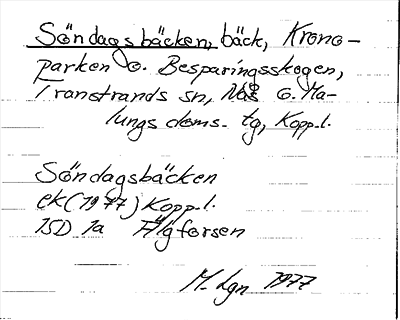 Söndagsbäcken, bäck, Krono-
parken o. Besparingsskogen,
Transtrands sn, Nås o. Ma-
lungs doms. tg, Kopp.l.
Söndagsbäcken
ek (1977) Kopp.l.
15D 1a Älgforsen
M. Lgn 1977